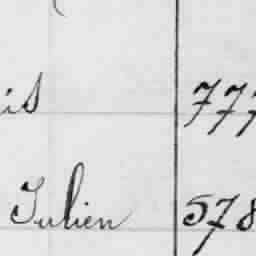 is 777
Julien 578